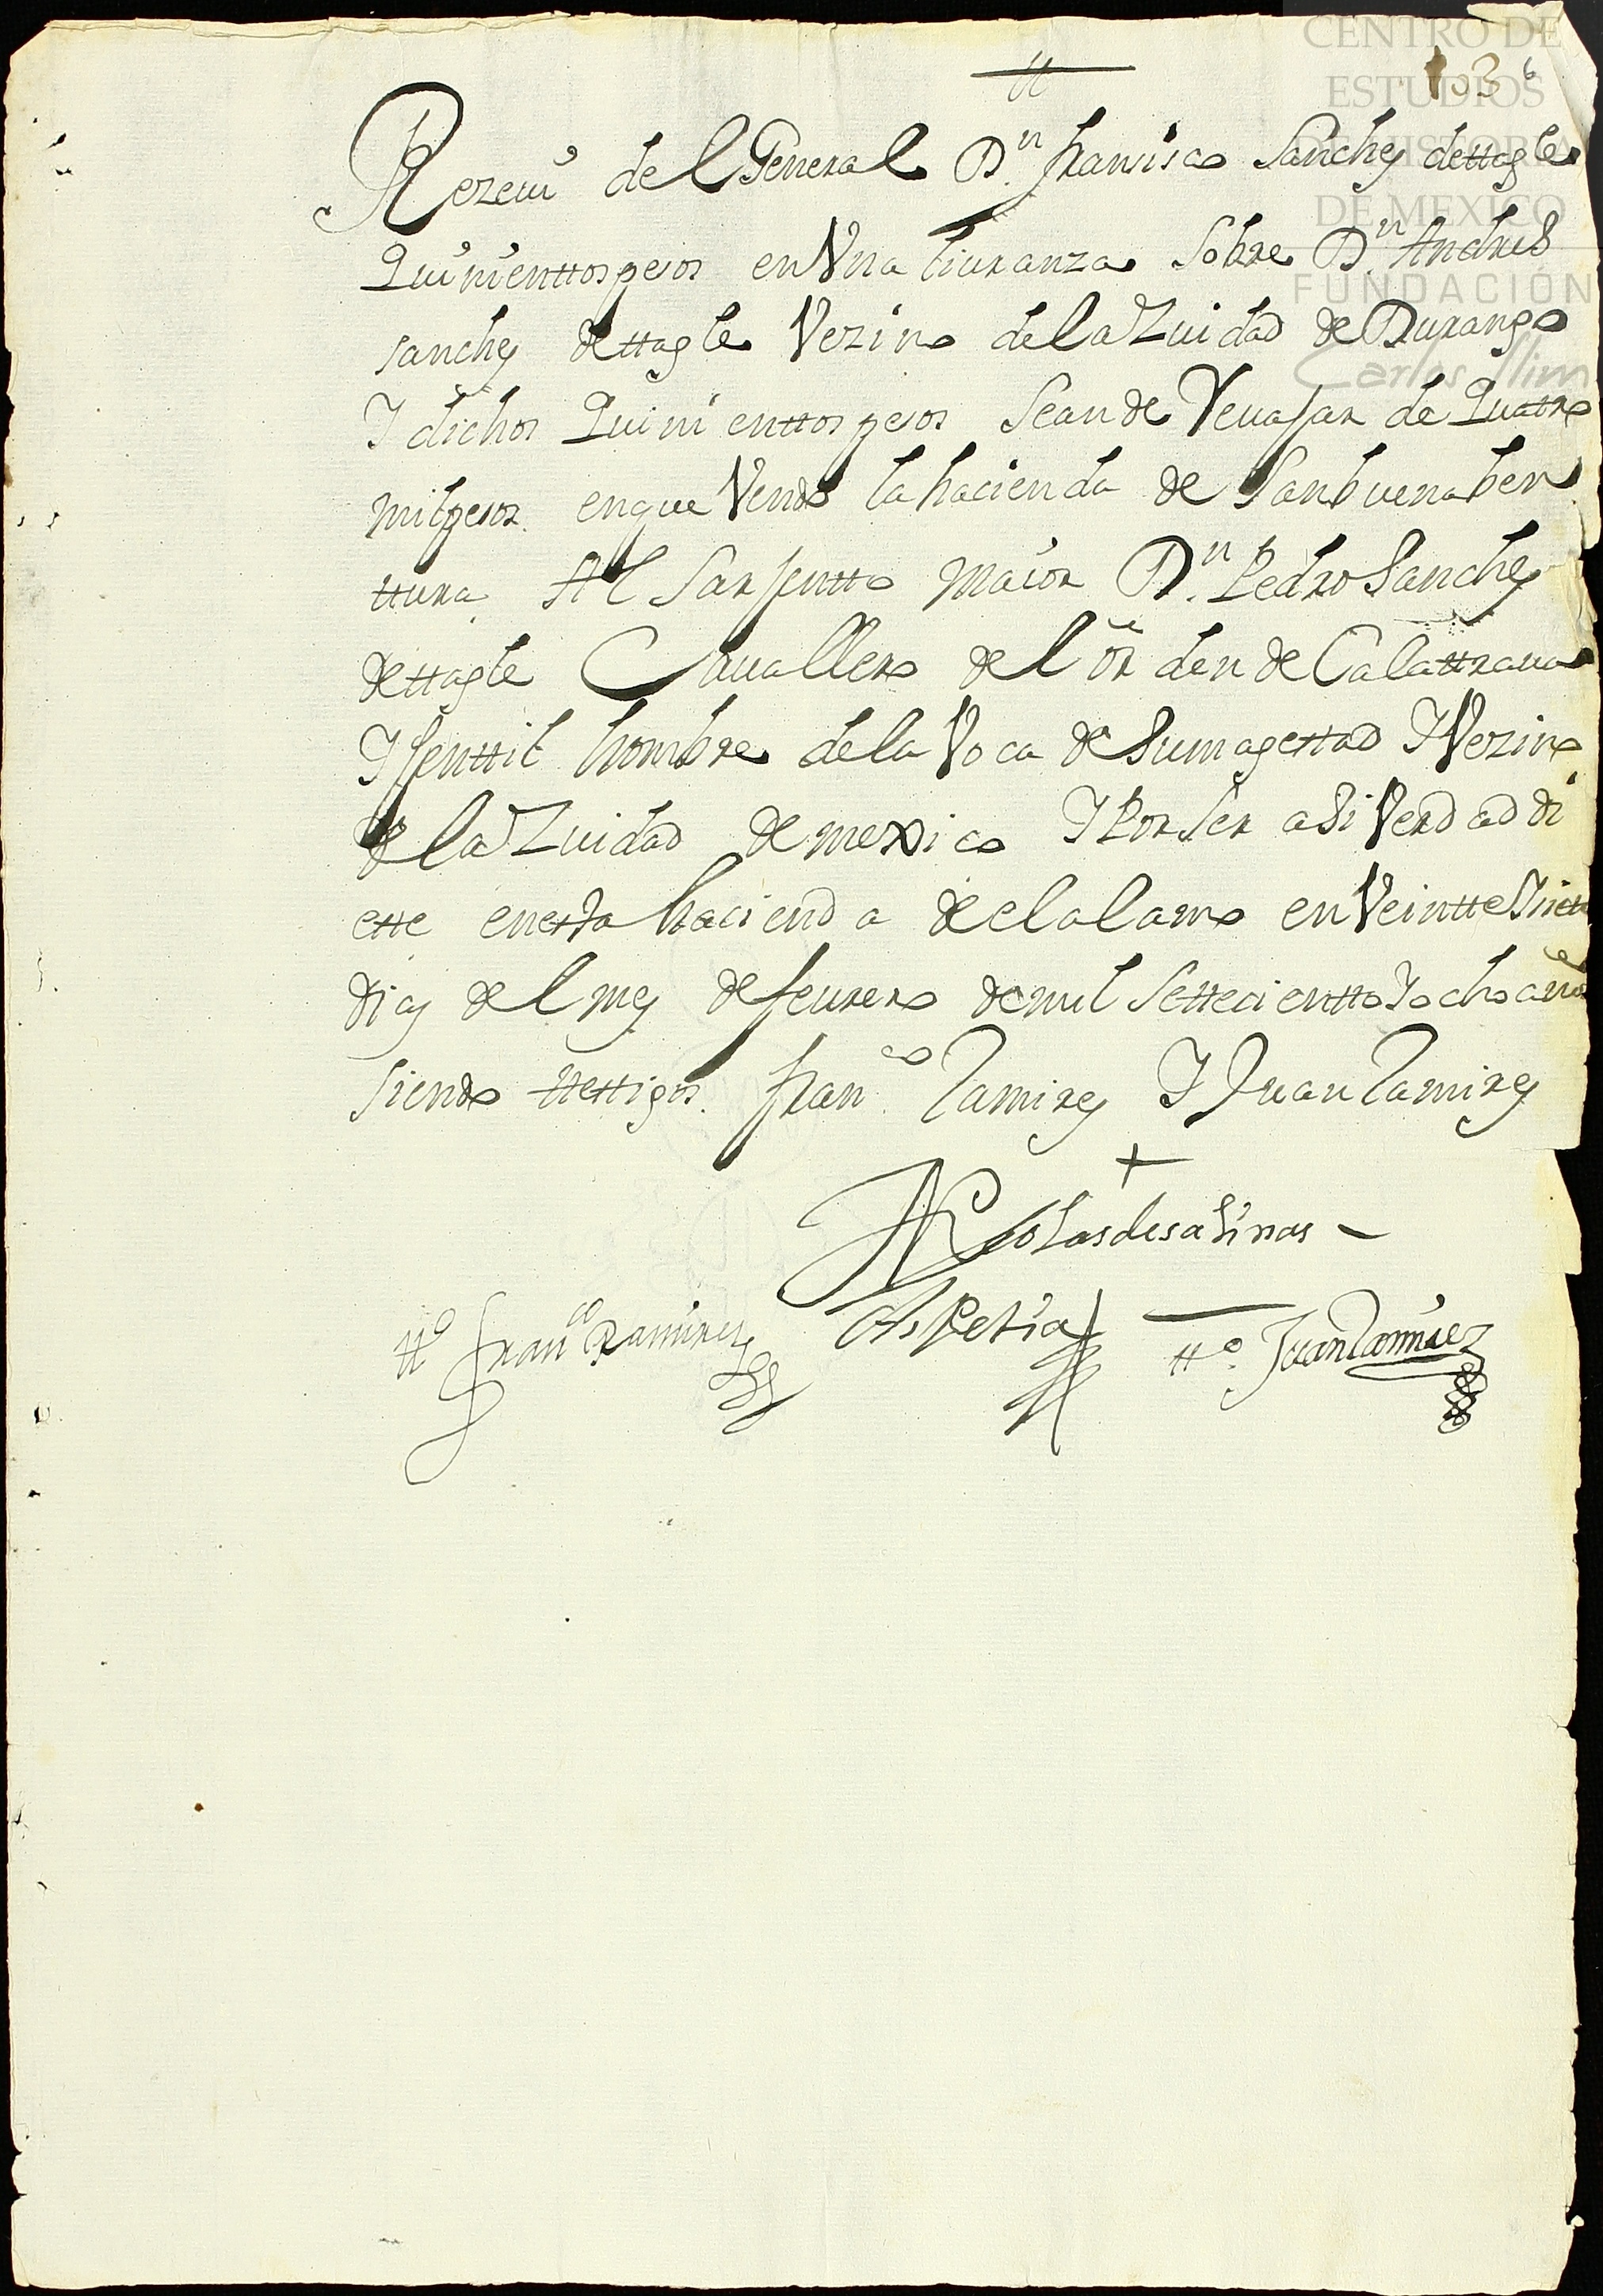 CENTRO DE
ESTUDIOS
DE HISTORIA
DE MEXICO
FUNDACIÓN
Carlos Slim
103
Rezeui del General Dn. fransisco Sanches dettagle
Quinienttos pesos en Vna liuranza Sobre Dn. Andres
sanches dettagle Vezino de la Zuidad de Durango
I dichos Quinienttos pesos Sean de Veuajar de Quatro
mil pesos en que Vendo la hacienda de San buenaben
ttura Al Sarjentto maior Dn. Pedro Sanches
dettagle Cauallero del orden de Calattraua
I jenttil hombre de la Voca de Sumagettad I Vezino
de la Zuidad de mexico I Por Ser asi Verdad di
ette enesta hacienda de el alamo en Veintte I siette
dias del mes de feurero de mil Settecientto I ocho años
siendo ttettigos. Franco. Ramires I Juan Ramires
Nicolas de salinas
tto Franco Ramirez
Aspetia
tto. Juan Ramirez